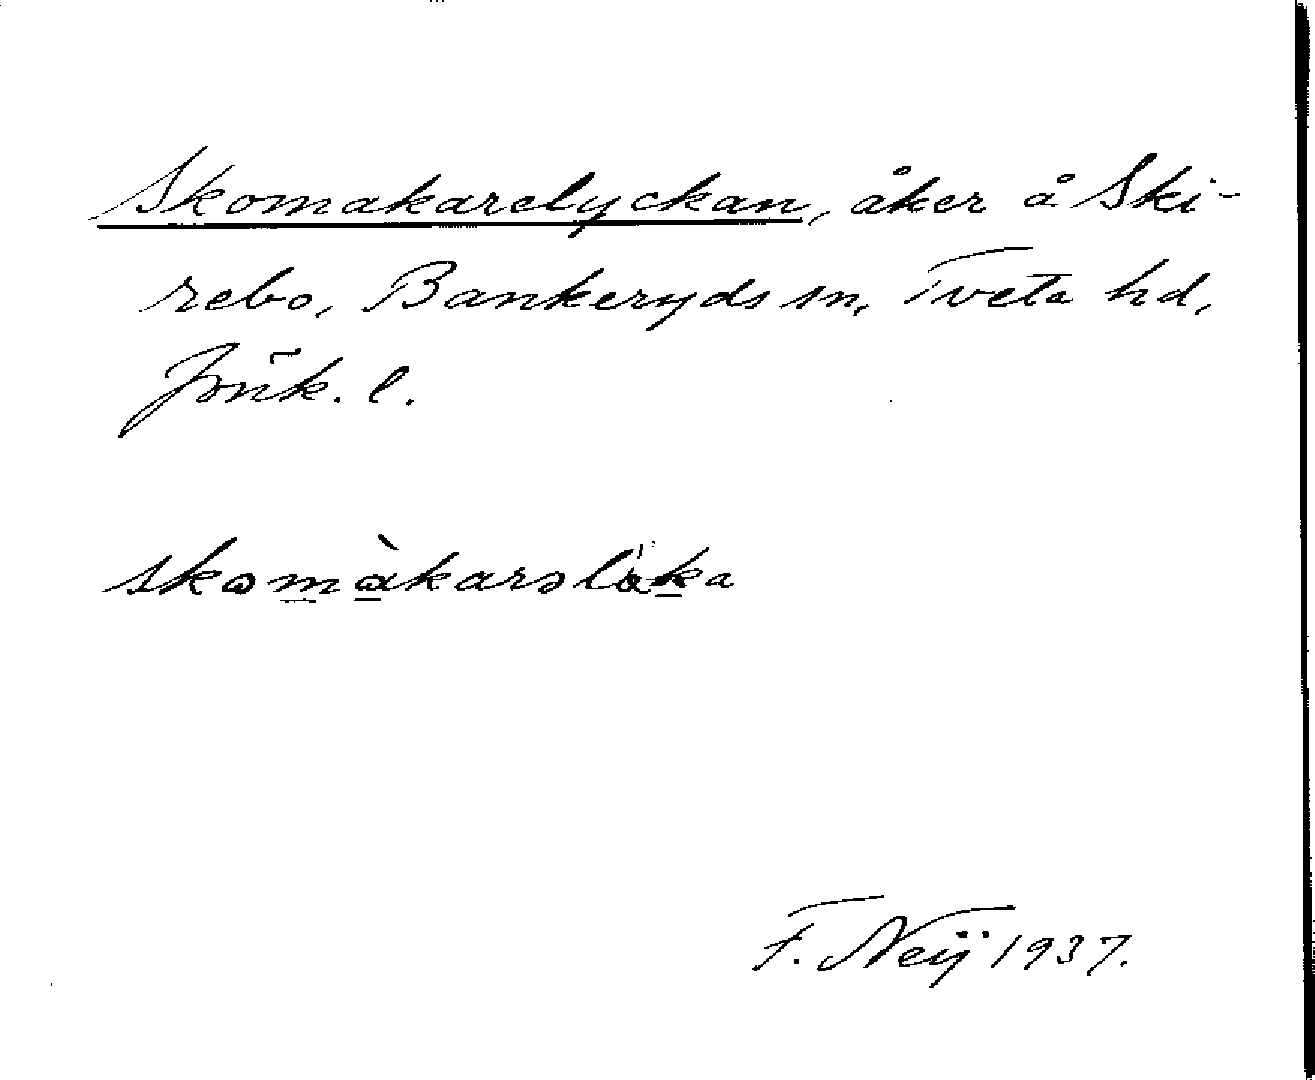 Skomakarelyckan, åker å Ski-
rebo, Bankeryds sn, Tveta hd,
Jönk. l.
skomàkarəlöka
F. Neij 1937.